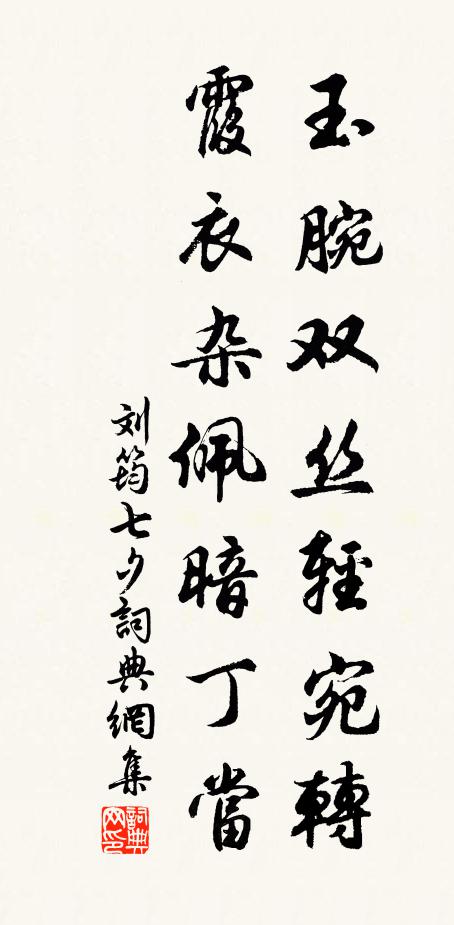 玉腕双丝輕宛轉
霞衣杂佩暗丁當
刘筠七夕詞典網集
詞典网印